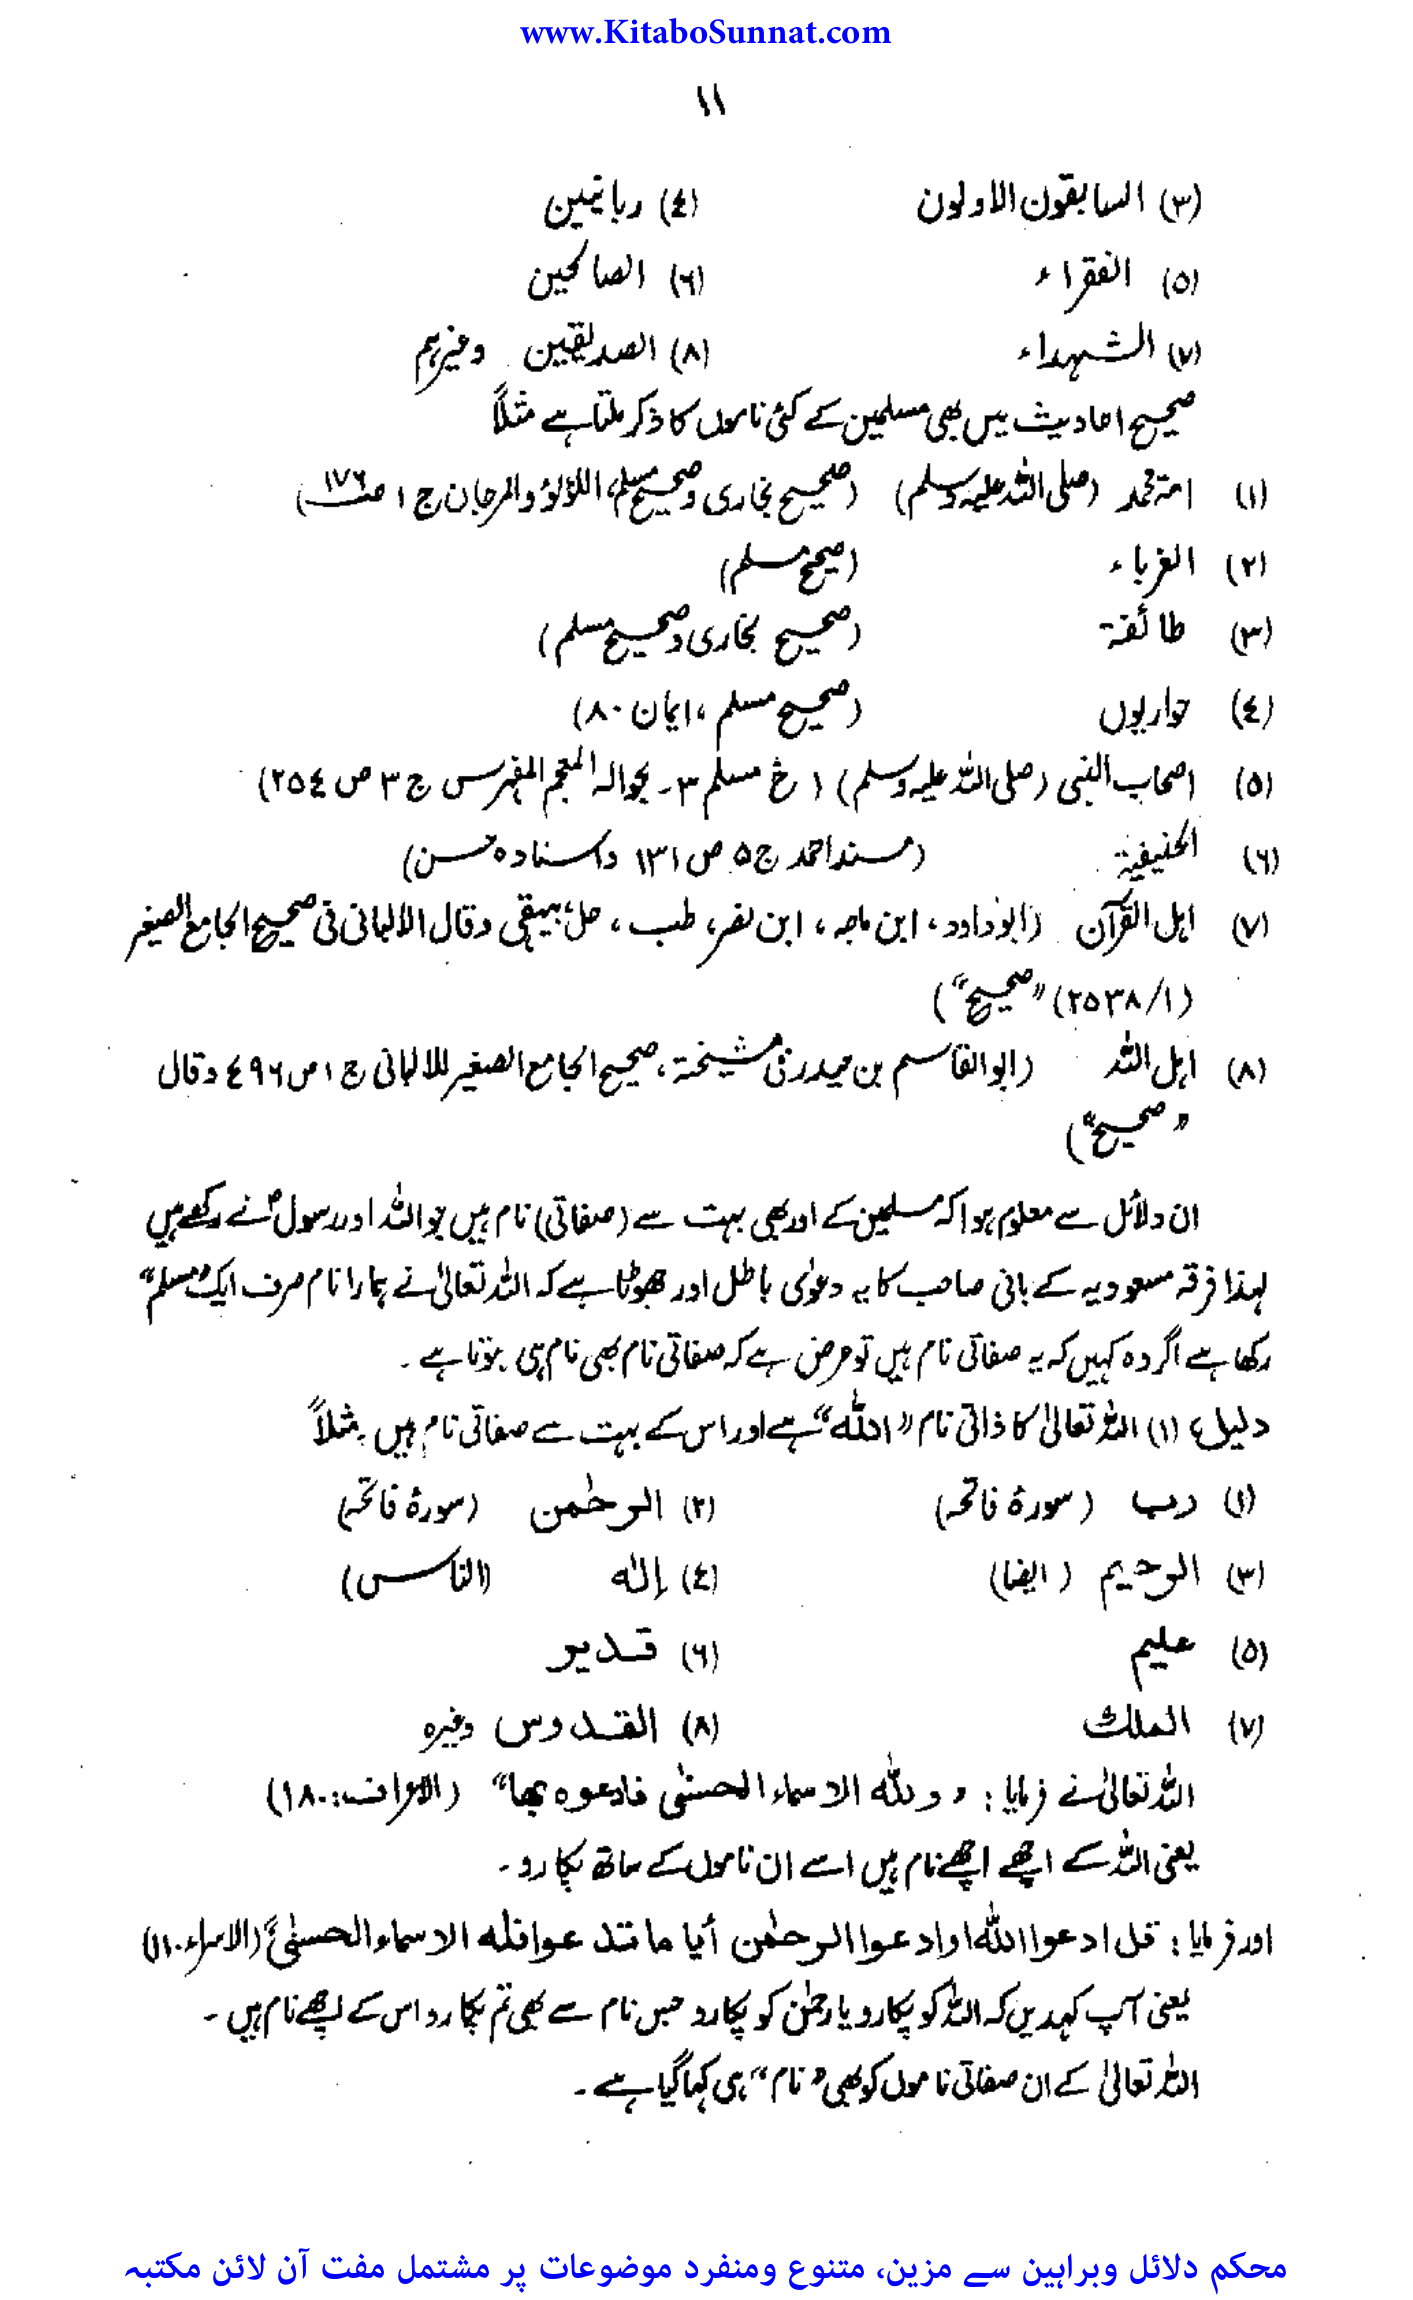 www.KitaboSunnat.com
۱۱
(۳) السابقون الاولون (٤) ربانیین
(۵) الفقراء (٦) الصالحین
(۷) الشہداء (۸) الصدیقین وغیرہم
صحیح احادیث میں بھی مسلمین کے کئی ناموں کا ذکر ملتا ہے مثلاً
(۱) امۃ محمد (صلی اللہ علیہ وسلم) (صحیح بخاری و صحیح مسلم، اللؤلؤ والمرجان ج ۱ ص ۱۷٦)
(۲) الغرباء (صحیح مسلم)
(۳) طائفۃ (صحیح بخاری و صحیح مسلم)
(٤) حواریوں (صحیح مسلم، ایمان ۸۰)
(۵) اصحاب النبی (صلی اللہ علیہ وسلم) (خ مسلم ۳۔ بحوالہ المعجم المفہرس ج ۳ ص ۲۵٤)
(٦) الحنیفیۃ (مسند احمد ج ۵ ص ۱۳۱ واسنادہ حسن)
(۷) اہل القرآن (ابوداود، ابن ماجہ، ابن نصر، طب، حل، بیہقی وقال الالبانی فی صحیح الجامع الصغیر
(۱/۲۵۳۸) “صحیح”)
(۸) اہل اللہ (ابو القاسم بن حیدر فی مشیختہ، صحیح الجامع الصغیر للالبانی ج ۱ ص ٤۹٦ وقال
“صحیح”)
ان دلائل سے معلوم ہوا کہ مسلمین کے اور بھی بہت سے (صفاتی) نام ہیں جو اللہ اور رسولؐ نے رکھے ہیں
لہذا فرقہ مسعودیہ کے بانی صاحب کا یہ دعوٰی باطل اور جھوٹا ہے کہ اللہ تعالیٰ نے ہمارا نام صرف ایک “مسلم”
رکھا ہے اگر وہ کہیں کہ یہ صفاتی نام ہیں تو عرض ہے کہ صفاتی نام بھی نام ہی ہوتا ہے۔
دلیل: (۱) اللہ تعالیٰ کا ذاتی نام “اللہ” ہے اور اس کے بہت سے صفاتی نام ہیں۔ مثلاً
(۱) رب (سورۂ فاتحہ) (۲) الرحمٰن (سورۂ فاتحہ)
(۳) الرحیم (ایضا) (٤) إلٰہ (الناس)
(۵) علیم (٦) قدیر
(۷) الملک (۸) القدوس وغیرہ
اللہ تعالیٰ نے فرمایا: “وللہ الاسماء الحسنٰی فادعوہ بھا” (الاعراف: ۱۸۰)
یعنی اللہ کے اچھے اچھے نام ہیں اسے ان ناموں کے ساتھ پکارو۔
اور فرمایا: قل ادعوا اللہ او ادعوا الرحمٰن أیا ما تدعوا فلہ الاسماء الحسنیٰ (الاسراء ۱۱۰)
یعنی آپ کہدیں کہ اللہ کو پکارو یا رحمٰن کو پکارو جس نام سے بھی تم پکارو اس کے اچھے نام ہیں۔
اللہ تعالیٰ کے ان صفاتی ناموں کو بھی “نام” ہی کہا گیا ہے۔
محکم دلائل وبراہین سے مزین، متنوع ومنفرد موضوعات پر مشتمل مفت آن لائن مکتبہ